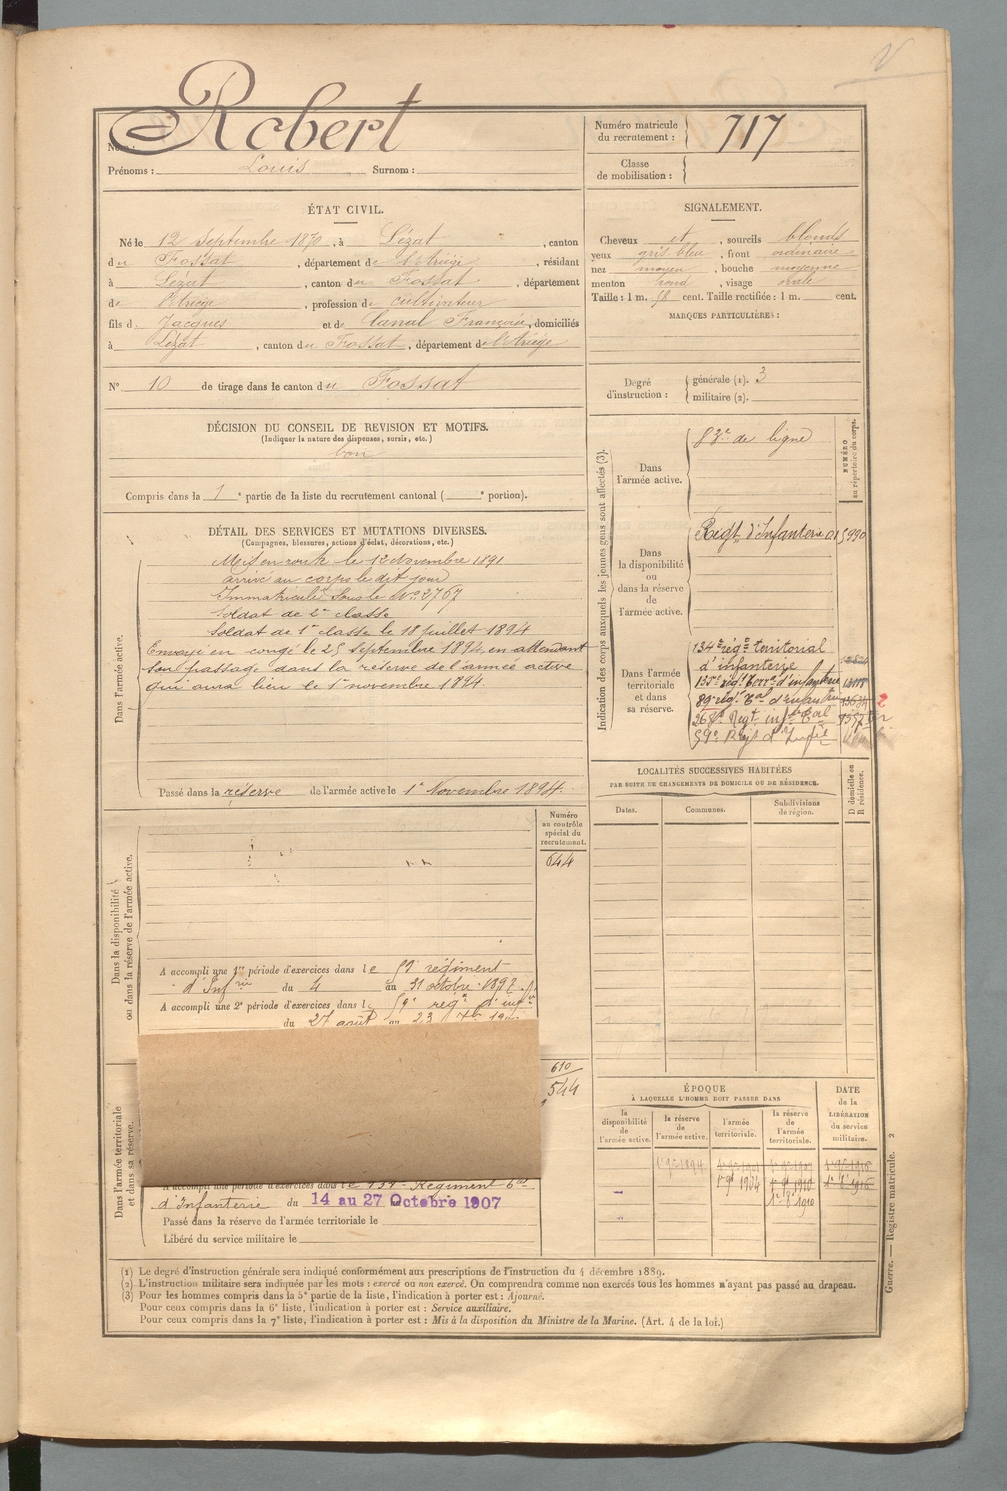 Robert
Nom :
Prénoms : Louis Surnom :
Numéro matricule du recrutement : 717
Classe de mobilisation :
ÉTAT CIVIL.
Né le 12 Septembre 1870, à Lézat, canton
du Fossat, département de l'Ariège, résidant
à Lézat, canton du Fossat, département
de l'Ariège, profession de cultivateur
fils d Jacques et de Canal Françoise, domiciliés
à Lézat, canton du Fossat, département de l'Ariège
N° 10 de tirage dans le canton du Fossat
SIGNALEMENT.
Cheveux et, sourcils blonds
yeux gris bleu, front ordinaire
nez moyen, bouche moyenne
menton rond, visage ovale
Taille : 1 m. 58 cent. Taille rectifiée : 1 m. cent.
MARQUES PARTICULIÈRES :
Degré d'instruction :
générale (1). 3
militaire (2).
DÉCISION DU CONSEIL DE REVISION ET MOTIFS.
(Indiquer la nature des dispenses, sursis, etc.)
bon
Compris dans la 1e partie de la liste du recrutement cantonal ( e portion).
DÉTAIL DES SERVICES ET MUTATIONS DIVERSES.
(Campagnes, blessures, actions d'éclat, décorations, etc.)
Dans l'armée active.
Mis en route le 12 Novembre 1891
arrivé au corps le dit jour
Immatriculé sous le N° 2767
Soldat de 2e classe
Soldat de 1e classe le 18 juillet 1894
Envoyé en congé le 25 Septembre 1894, en attendant
son passage dans la réserve de l'armée active
qui aura lieu le 1er novembre 1894.
Passé dans la réserve de l'armée active le 1er Novembre 1894.
Indication des corps auxquels les jeunes gens sont affectés (3).
NUMÉRO au répertoire du corps.
Dans l'armée active.
83e de ligne
Dans la disponibilité ou dans la réserve de l'armée active.
Regt d'Infanterie 01590
Dans l'armée territoriale et dans sa réserve.
134e régt territorial
d'infanterie
135e régt Terral d'infanterie
89e régt Tal d'infanterie
59e Régt d'Infie
LOCALITÉS SUCCESSIVES HABITÉES
PAR SUITE DE CHANGEMENTS DE DOMICILE OU DE RÉSIDENCE.
Dates.
Communes.
Subdivisions de région.
D domicile ou R résidence.
Dans la disponibilité ou dans la réserve de l'armée active.
Numéro au contrôle spécial du recrutement.
644
A accompli une 1re période d'exercices dans le 59 régiment
d'Infrie du 4 au 31 octobre 1897
A accompli une 2e période d'exercices dans l 59e regt d'infie
du 27 août au 23
Dans l'armée territoriale et dans sa réserve.
610
544
A accompli une période d'exercices dans le Régiment
d'Infanterie du 14 au 27 Octobre 1907
Passé dans la réserve de l'armée territoriale le
Libéré du service militaire le
ÉPOQUE
À LAQUELLE L'HOMME DOIT PASSER DANS
la disponibilité de l'armée active.
la réserve de l'armée active.
l'armée territoriale.
la réserve de l'armée territoriale.
DATE de la LIBÉRATION du service militaire.
(1) Le degré d'instruction générale sera indiqué conformément aux prescriptions de l'instruction du 4 décembre 1889.
(2) L'instruction militaire sera indiquée par les mots : exercé ou non exercé. On comprendra comme non exercés tous les hommes n'ayant pas passé au drapeau.
(3) Pour les hommes compris dans la 5e partie de la liste, l'indication à porter est : Ajourné.
Pour ceux compris dans la 6e liste, l'indication à porter est : Service auxiliaire.
Pour ceux compris dans la 7e liste, l'indication à porter est : Mis à la disposition du Ministre de la Marine. (Art. 4 de la loi.)
Guerre. — Registre matricule. 2